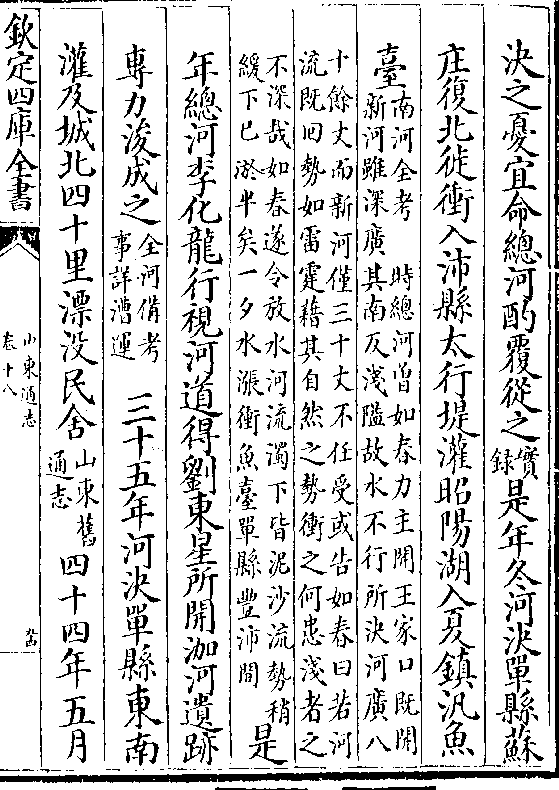 決之憂宜命總河酌覆從之實錄是年冬河決單縣蘇
庄復北徙衝入沛縣太行堤灌昭陽湖入夏鎮汎魚
臺南河全考時總河曾如春力主開王家口既開
新河雖深廣其南反淺隘故水不行所決河廣八
十餘丈而新河僅三十丈不任受或告如春曰若河
流既回勢如雷霆藉其自然之勢衝之何患淺者之
不深哉如春遂令放水河流濁下皆泥沙流勢稍
緩下已淤半矣一夕水漲衝魚臺單縣豐沛間是
年總河李化龍行視河道得劉東星所開泇河遺跡
專力浚成之全河備考事詳漕運三十五年河決單縣東南
灌及城北四十里漂没民舍山東舊通志四十四年五月
欽定四庫全書
山東通志
卷十八